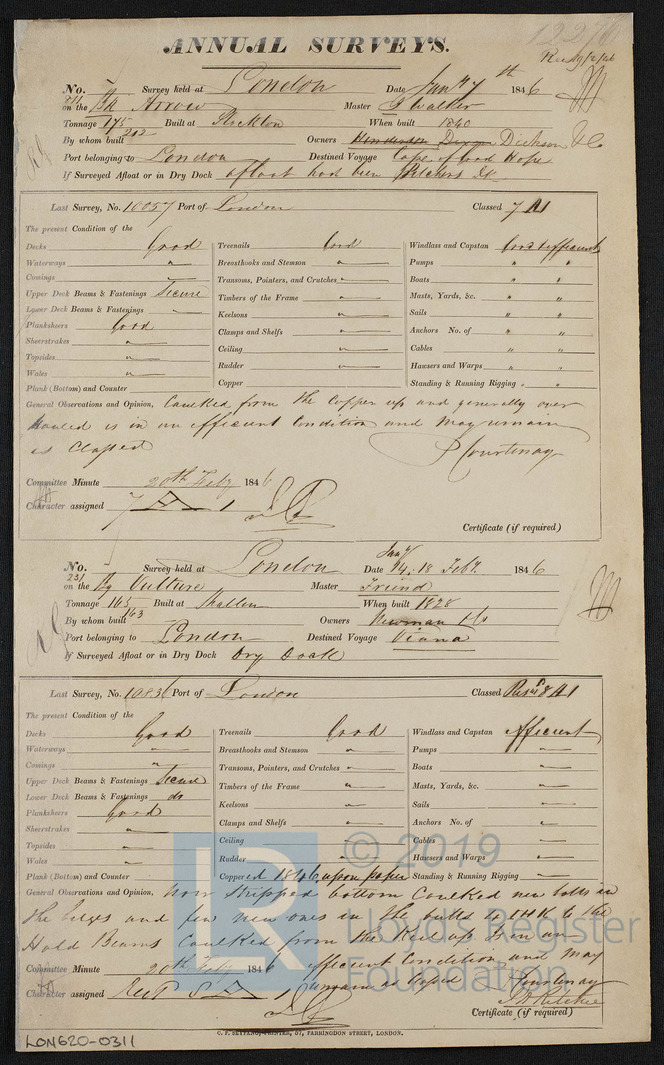 ANNUAL SURVEYS.
No. Survey held at London Date Jany 7th 1846
on the Bk Arrow Master J Walker
Tonnage 175 Built at Stockton When built 1840
212
By whom built Owners Henderson Dixon Dickson & Co
Port belonging to London Destined Voyage Cape of Good Hope
If Surveyed Afloat or in Dry Dock afloat had been Pitchers Dk
Last Survey, No. 10057 Port of London Classed 7 A1
The present Condition of the
Decks Good Treenails Good Windlass and Capstan Good & efficient
Waterways " Breasthooks and Stemson " Pumps " "
Comings Transoms, Pointers, and Crutches " Boats " "
Upper Deck Beams & Fastenings Secure Timbers of the Frame " Masts, Yards, &c. " "
Lower Deck Beams & Fastenings " Keelsons " Sails " "
Planksheers Good Clamps and Shelfs " Anchors No. of " "
Sheerstrakes " Ceiling " Cables " "
Topsides " Rudder " Hawsers and Warps " "
Wales " Copper Standing & Running Rigging " "
Plank (Bottom) and Counter
General Observations and Opinion, Caulked from the Copper up and generally over
hauled is in an efficient Condition and may remain
as Classed P Courtenay
Committee Minute 20th Feby 1846
Character assigned 7 A 1
Certificate (if required)
No. Survey held at London Date Jany 14, 18 Feby. 1846
231
on the Bg Vulture Master Friend
Tonnage 165 Built at When built 1828
163
By whom built Owners Newman & Co
Port belonging to London Destined Voyage Viana
If Surveyed Afloat or in Dry Dock Dry Dock
Last Survey, No. 10836 Port of London Classed 8 A1
The present Condition of the
Decks Good Treenails Good Windlass and Capstan efficient
Waterways " Breasthooks and Stemson " Pumps "
Comings " Transoms, Pointers, and Crutches " Boats "
Upper Deck Beams & Fastenings Secure Timbers of the Frame " Masts, Yards, &c. "
Lower Deck Beams & Fastenings do Keelsons " Sails "
Planksheers Good Clamps and Shelfs " Anchors No. of "
Sheerstrakes " Ceiling Cables "
Topsides " Rudder " Hawsers and Warps "
Wales " Coppered 1846 upon paper Standing & Running Rigging "
Plank (Bottom) and Counter
General Observations and Opinion, Now Stripped bottom Caulked new bolts in
the bilges and few new ones in the butts
Hold Beams Caulked from the Keel up is in an
efficient Condition and may
remain as Classed
Committee Minute 20th Feby 1846 Courtenay
Character assigned 8 A 1 J H Ritchie
Certificate (if required)
C. F. SEYFANG, PRINTER, 57, FARRINGDON STREET, LONDON.
LON620-0311
LR
© 2019
Lloyd's Register
Foundation